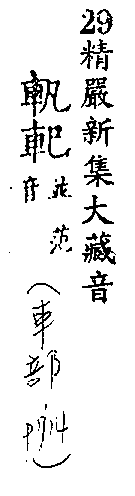 29精嚴新集大藏音
軓
並范
音
(車部